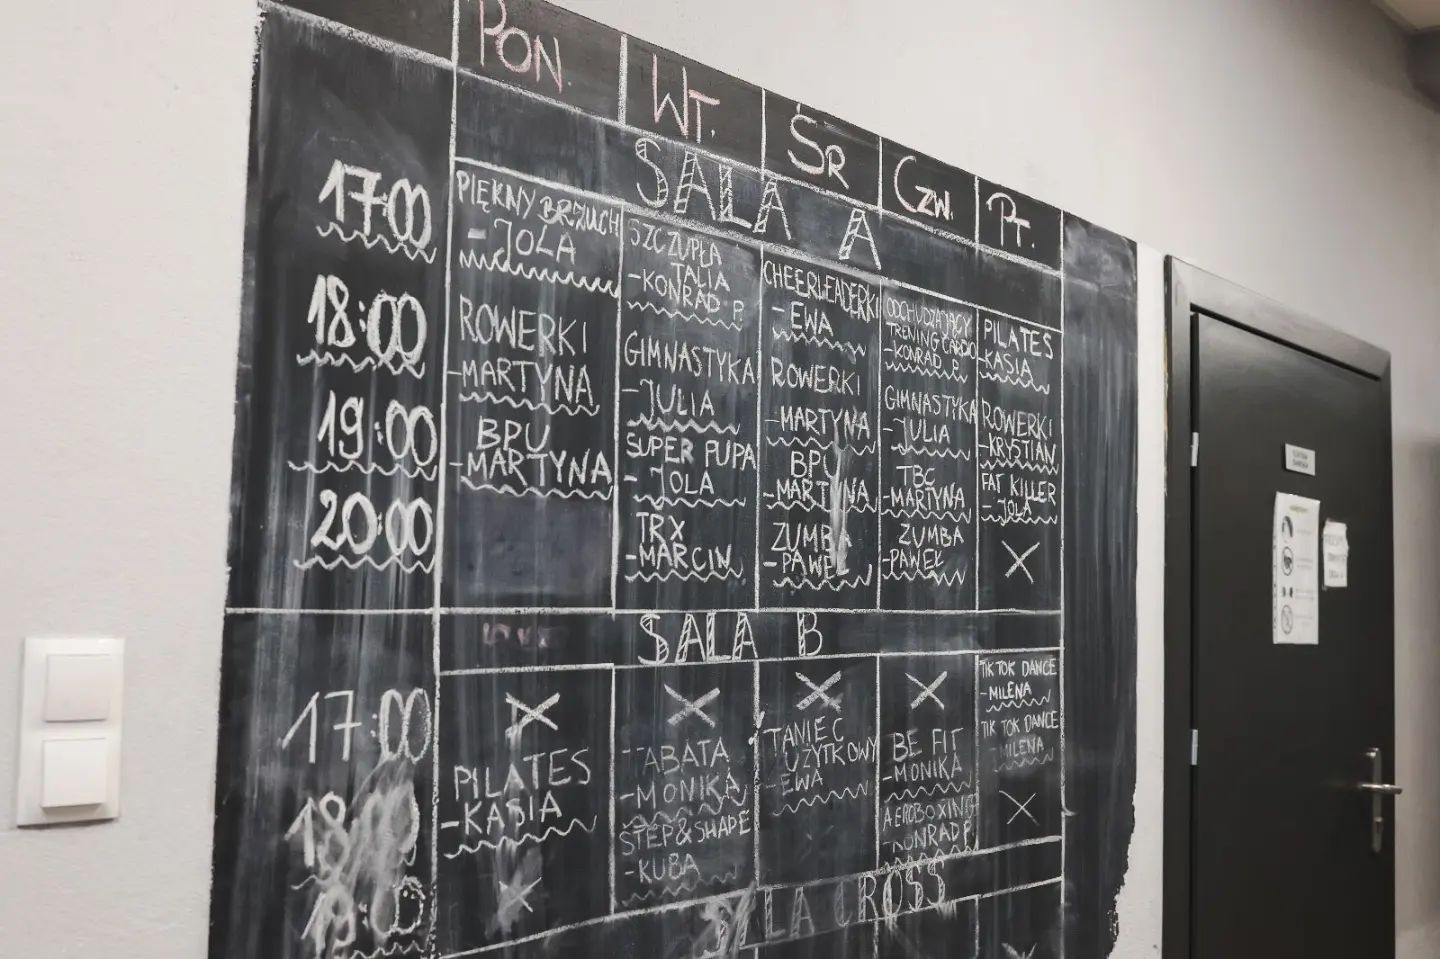 PON.
WT.
ŚR
CZW.
PT.
SALA A
17:00
PIĘKNY BRZUCH
- JOLA
SZCZUPŁA
TALIA
-KONRAD P.
CHEERLEADERKI
- EWA
ODCHUDZAJĄCY
TRENING CARDIO
-KONRAD P.
PILATES
-KASIA
18:00
ROWERKI
-MARTYNA
GIMNASTYKA
-JULIA
ROWERKI
-MARTYNA
GIMNASTYKA
-JULIA
ROWERKI
-KRYSTIAN
19:00
BPU
-MARTYNA
SUPER PUPA
- JOLA
BPU
-MARTYNA
TBC
-MARTYNA
FAT KILLER
- JOLA
20:00
TRX
-MARCIN
ZUMBA
-PAWEŁ
ZUMBA
-PAWEŁ
X
SALA B
17:00
X
X
X
X
TIK TOK DANCE
-MILENA
18:00
PILATES
-KASIA
TABATA
-MONIKA
TANIEC
UŻYTKOWY
-EWA
BE FIT
-MONIKA
TIK TOK DANCE
-MILENA
19:00
X
STEP&SHAPE
-KUBA
AEROBOXING
-KONRAD P.
X
SALA CROSS